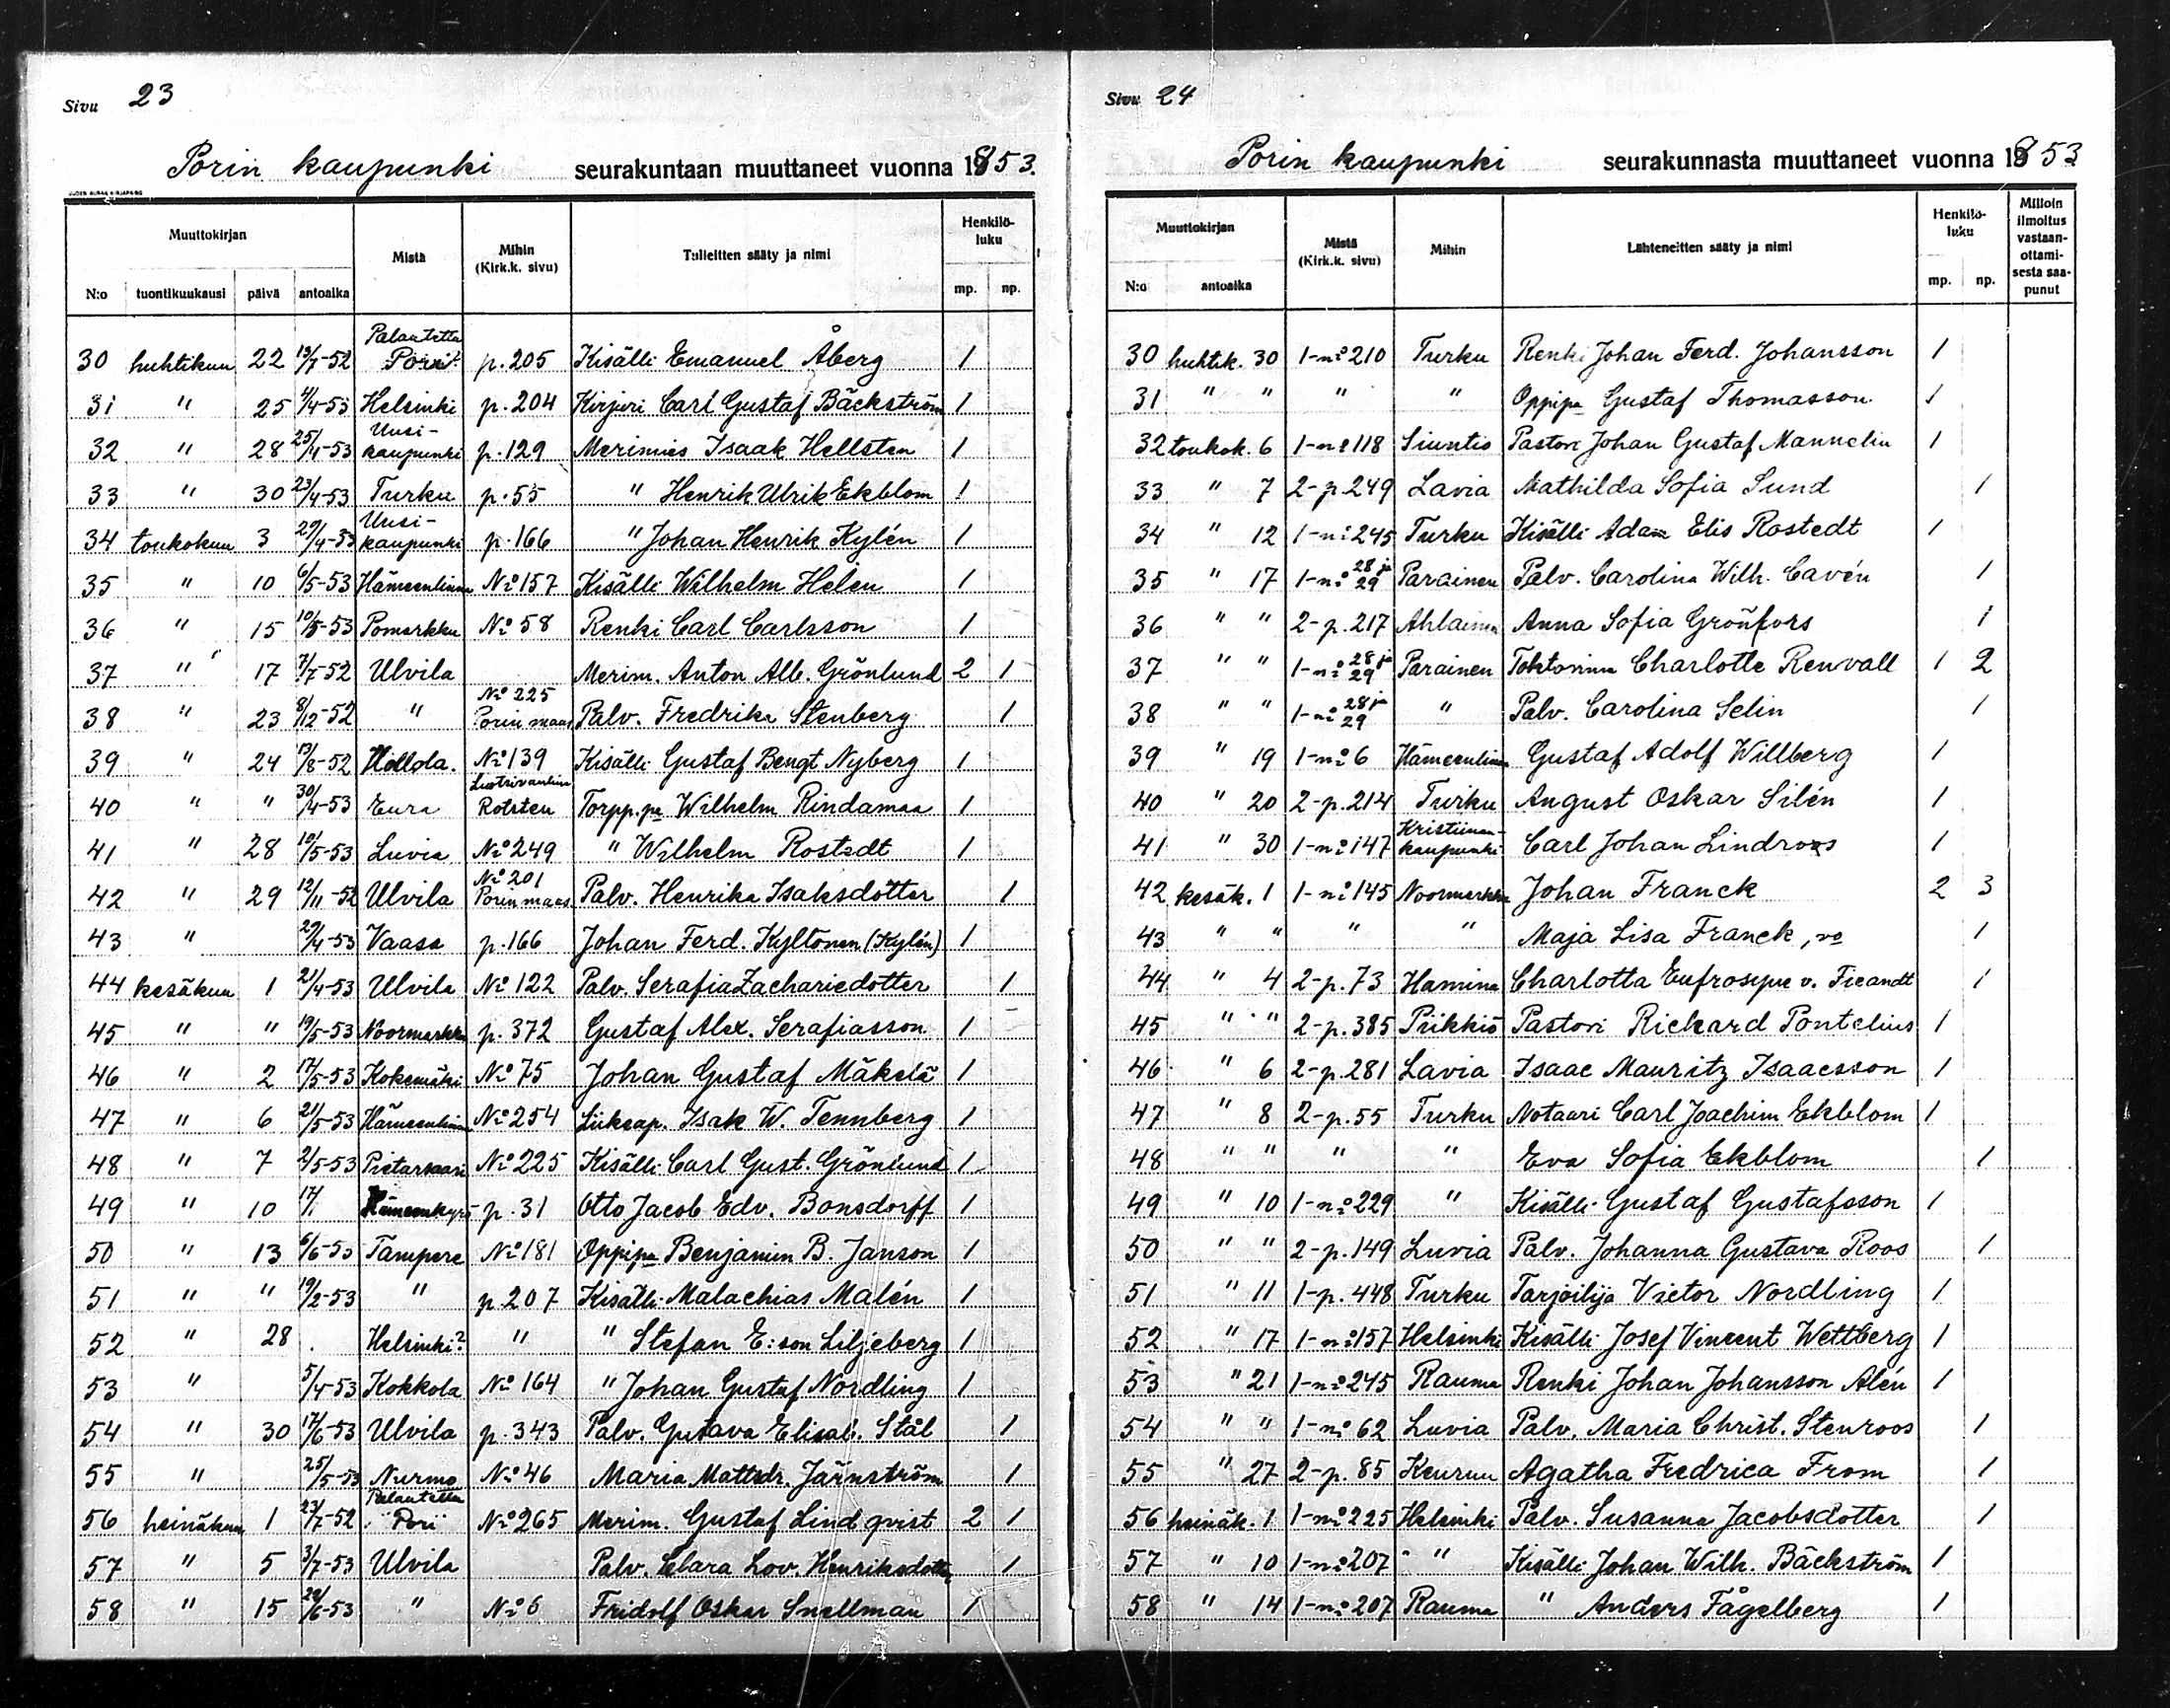 Sivu 23
Porin kaupunki seurakuntaan muuttaneet vuonna 1853.
UUDEN AURAN KIRJAPAINO
Muuttokirjan Mistä Mihin (Kirk.k. sivu) Tulleitten sääty ja nimi Henkilö-luku
N:o tuontikuukausi päivä antoaika mp. np.
30 huhtikuu 22 13/7-52 Palautettu Pori p. 205 Kisälli Emanuel Åberg 1
31 " 25 4/4-53 Helsinki p. 204 Kirjuri Carl Gustaf Bäckström 1
32 " 28 25/4-53 Uusi-kaupunki p. 129 Merimies Isaak Hellsten 1
33 " 30 23/4-53 Turku p. 55 " Henrik Ulrik Ekblom 1
34 toukokuu 3 29/4-53 Uusi-kaupunki p. 166 " Johan Henrik Kylén 1
35 " 10 6/5-53 Hämeenlinna No 157 Kisälli Wilhelm Helén 1
36 " 15 10/5-53 Pomarkku No 58 Renki Carl Carlsson 1
37 " 17 7/7-52 Ulvila Merim. Anton Alb. Grönlund 2 1
38 " 23 8/12-52 " No 225 Porin maas. Palv. Fredrika Stenberg 1
39 " 24 13/8-52 Hollola. No 139 Kisälli Gustaf Bengt Nyberg 1
40 " " 30/4-53 Eura Rotsten Torpp.pa Wilhelm Rindamaa 1
41 " 28 10/5-53 Luvia No 249 " Wilhelm Rostedt 1
42 " 29 12/11-52 Ulvila No 201 Porin maas. Palv. Henrika Isaksdotter 1
43 " 29/4-53 Vaasa p. 166 Johan Ferd. Kyltönen (Kylén) 1
44 kesäkuu 1 21/4-53 Ulvila No 122 Palv. Serafia Zachariedotter 1
45 " " 19/5-53 Noormarkku p. 372 Gustaf Alex. Serafiasson 1
46 " 2 17/5-53 Kokemäki No 75 Johan Gustaf Mäkelä 1
47 " 6 21/5-53 Hämeenlinna No 254 Liikeap. Isak W. Tennberg 1
48 " 7 2/5-53 Pietarsaari No 225 Kisälli Carl Gust. Grönlund 1
49 " 10 17/ Hämeenkyrö p. 31 Otto Jacob Edv. Bonsdorff 1
50 " 13 6/6-53 Tampere No 181 Oppipa Benjamin B. Janson 1
51 " " 19/2-53 " p. 207 Kisälli Malachias Malén 1
52 " 28 Helsinki? " " Stefan E:son Liljeberg 1
53 " 5/4-53 Kokkola No 164 " Johan Gustaf Nordling 1
54 " 30 17/6-53 Ulvila p. 343 Palv. Gustava Elisab. Stål 1
55 " 25/5-53 Nurmo No 46 Maria Mattsdr. Järnström 1
56 heinäkuu 1 23/7-52 Palautettu Pori No 265 Merim. Gustaf Lindqvist 2 1
57 " 5 3/7-53 Ulvila Palv. Clara Lov. Henriksdotter 1
58 " 15 29/6-53 " No 6 Fridolf Oskar Snellman 1
Sivu 24
Porin kaupunki seurakunnasta muuttaneet vuonna 1853
Muuttokirjan Mistä (Kirk.k. sivu) Mihin Lähteneitten sääty ja nimi Henkilö-luku Milloin ilmoitus vastaan-ottami-sesta saa-punut
N:o antoaika mp. np.
30 huhtik. 30 1-no 210 Turku Renki Johan Ferd. Johansson 1
31 " " " " Oppipa Gustaf Thomasson 1
32 toukok. 6 1-no 118 Siuntio Pastori Johan Gustaf Mannelin 1
33 " 7 2-p. 249 Lavia Mathilda Sofia Sund 1
34 " 12 1-no 245 Turku Kisälli Adam Elis Rostedt 1
35 " 17 1-no 28 ja 29 Parainen Palv. Carolina Wilh. Cavén 1
36 " " 2-p. 217 Ahlainen Anna Sofia Grönfors 1
37 " " 1-no 28 ja 29 Parainen Tohtorinna Charlotte Renvall 1 2
38 " " 1-no 28 ja 29 " Palv. Carolina Selin 1
39 " 19 1-no 6 Hämeenlinna Gustaf Adolf Willberg 1
40 " 20 2-p. 214 Turku August Oskar Silén 1
41 " 30 1-no 147 Kristiinan-kaupunki Carl Johan Lindroos 1
42 kesäk. 1 1-no 145 Noormarkku Johan Franck 2 3
43 " " " " Maja Lisa Franck, vo 1
44 " 4 2-p. 73 Hamina Charlotta Eufrosyne v. Fieandt 1
45 " " 2-p. 385 Piikkiö Pastori Rickard Pontelius 1
46 " 6 2-p. 281 Lavia Isaac Mauritz Isaacsson 1
47 " 8 2-p. 55 Turku Notaari Carl Joachim Ekblom 1
48 " " " " Eva Sofia Ekblom 1
49 " 10 1-no 229 " Kisälli Gustaf Gustafsson 1
50 " " 2-p. 149 Luvia Palv. Johanna Gustava Roos 1
51 " 11 1-p. 448 Turku Tarjoilija Victor Nordling 1
52 " 17 1-no 157 Helsinki Kisälli Josef Vincent Wettberg 1
53 " 21 1-no 245 Rauma Renki Johan Johansson Alén 1
54 " " 1-no 62 Luvia Palv. Maria Christ. Stenroos 1
55 " 27 2-p. 85 Keuruu Agatha Fredrica From 1
56 heinäk. 1 1-no 225 Helsinki Palv. Susanna Jacobsdotter 1
57 " 10 1-no 207 " Kisälli Johan Wilh. Bäckström 1
58 " 14 1-no 207 Rauma " Anders Fågelberg 1